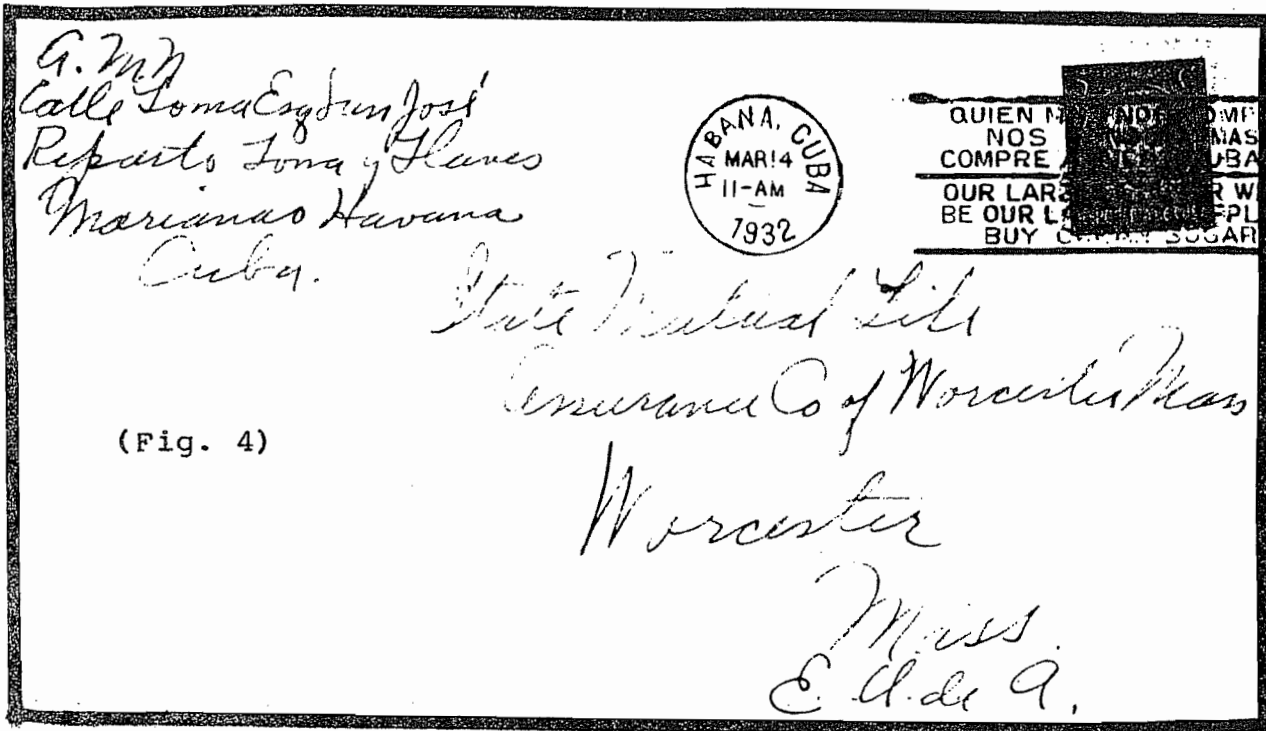 A. M. N
Calle Loma Esq San José
Reparto Loma y Llaves
Marianao Havana
Cuba.
HABANA, CUBA
MAR 14
11-AM
1932
QUIEN
NOS MAS
COMPRE
OUR
BE OUR
BUY SUGAR
State Mutual Life
Assurance Co of Worcester Mass
(Fig. 4)
Worcester
Mass.
E. U. de A.